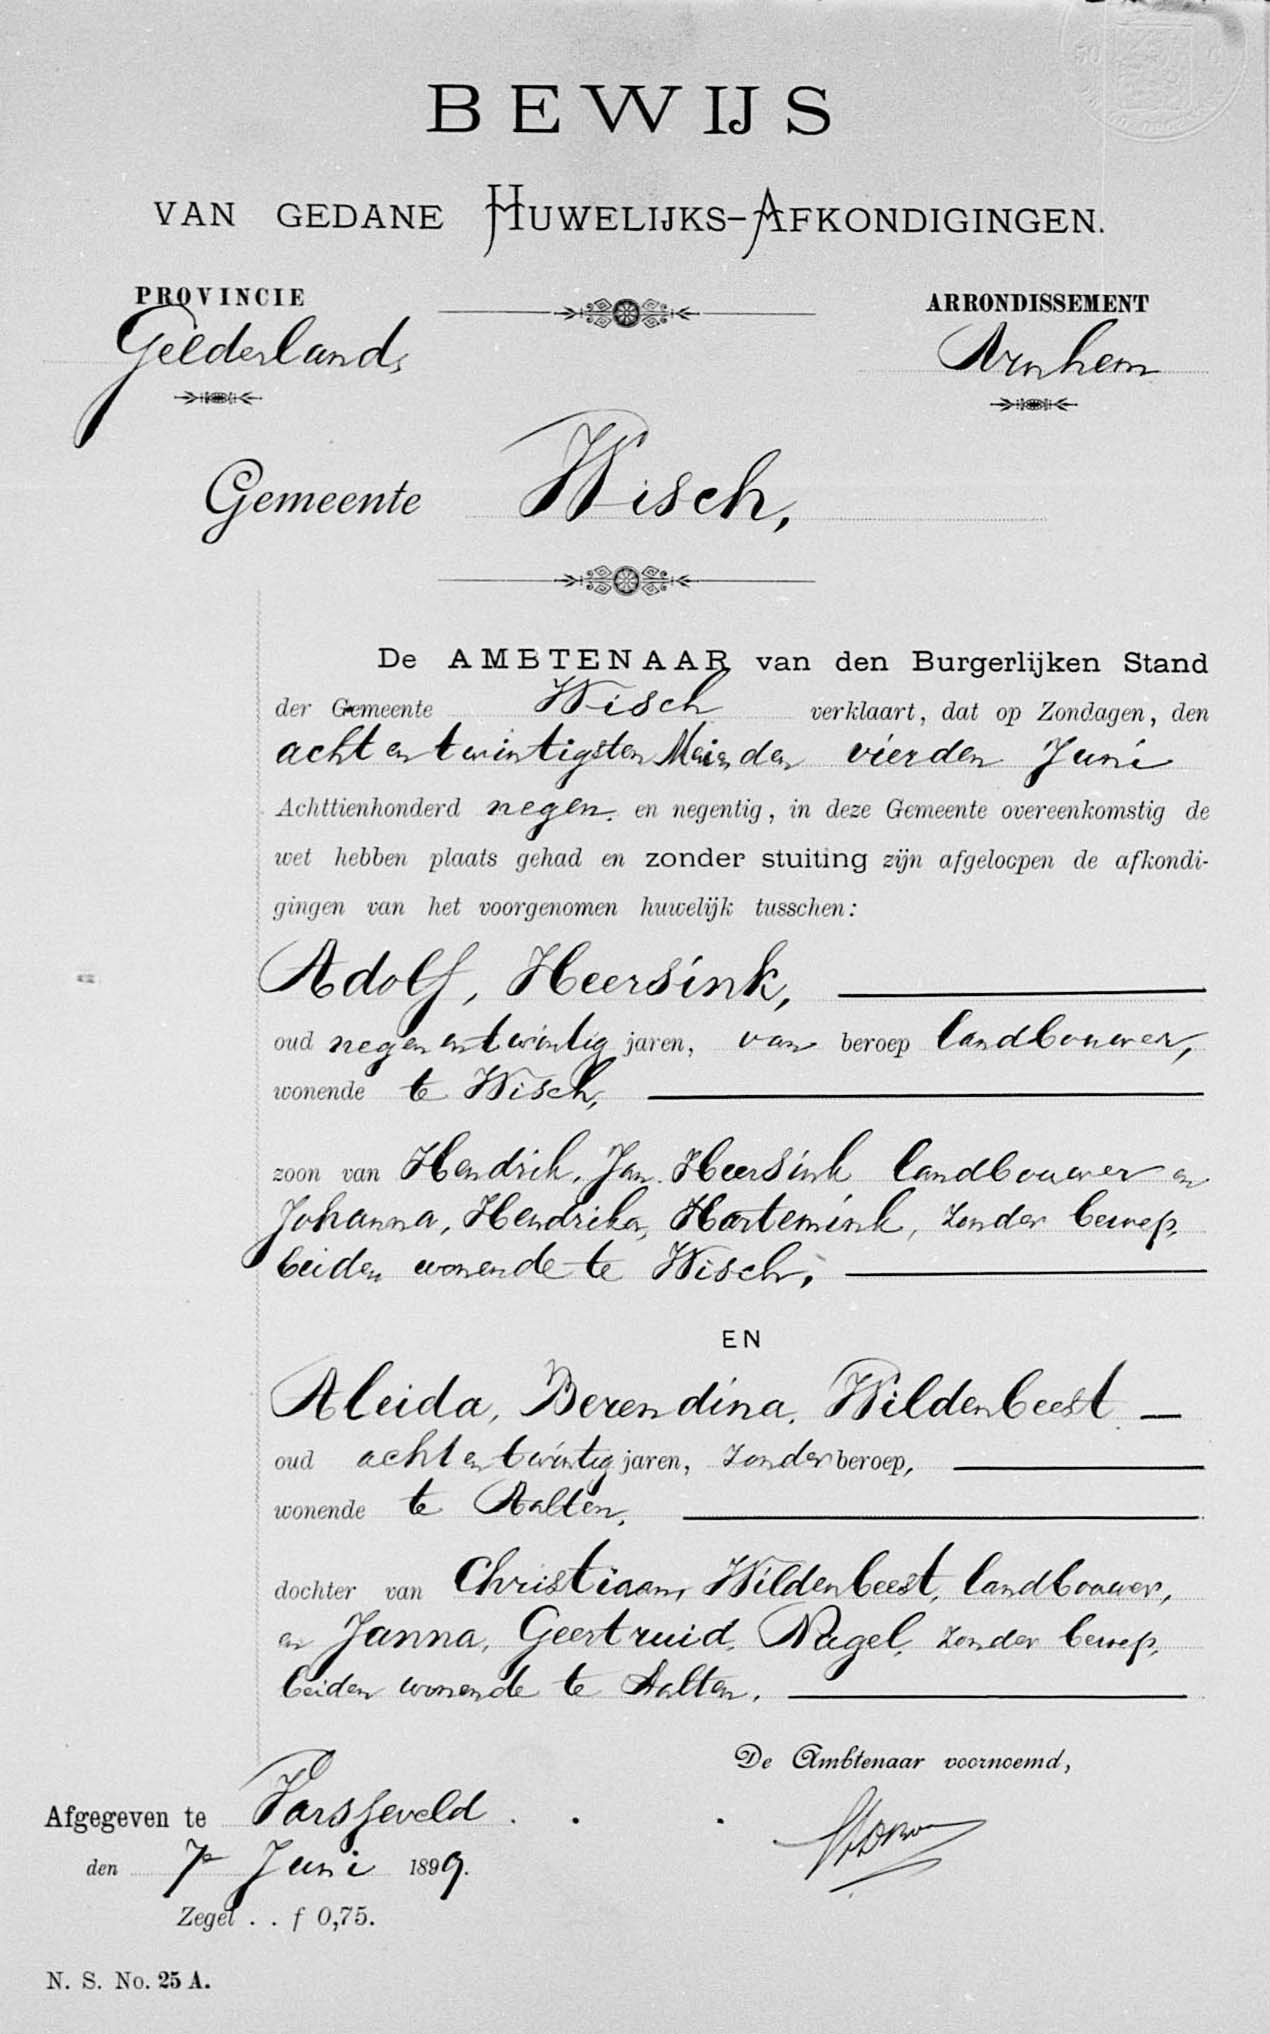 BEWIJS
VAN GEDANE HUWELIJKS-AFKONDIGINGEN.
PROVINCIE
ARRONDISSEMENT
Gelderland,
Arnhem
Gemeente Wisch,
De AMBTENAAR van den Burgerlijken Stand
der Gemeente Wisch verklaart, dat op Zondagen, den
acht en twintigsten Mei en den vierden Juni
Achttienhonderd negen en negentig, in deze Gemeente overeenkomstig de
wet hebben plaats gehad en zonder stuiting zijn afgeloopen de afkondi-
gingen van het voorgenomen huwelijk tusschen:
Adolf, Heersink,
oud negen en twintig jaren, van beroep landbouwer,
wonende te Wisch,
zoon van Hendrik, Jan Heersink landbouwer en
Johanna, Hendrika, Hartemink, zonder beroep,
beiden wonende te Wisch,
EN
Aleida, Berendina, Wildenbeest
oud acht en twintig jaren, zonder beroep,
wonende te Aalten,
dochter van Christiaan, Wildenbeest, landbouwer,
en Janna, Geertruid, Nagel, zonder beroep,
beiden wonende te Aalten.
De Ambtenaar voornoemd,
Afgegeven te Varsseveld
den 7n Juni 1899.
Zegel . . f 0,75.
N. S. No. 25 A.